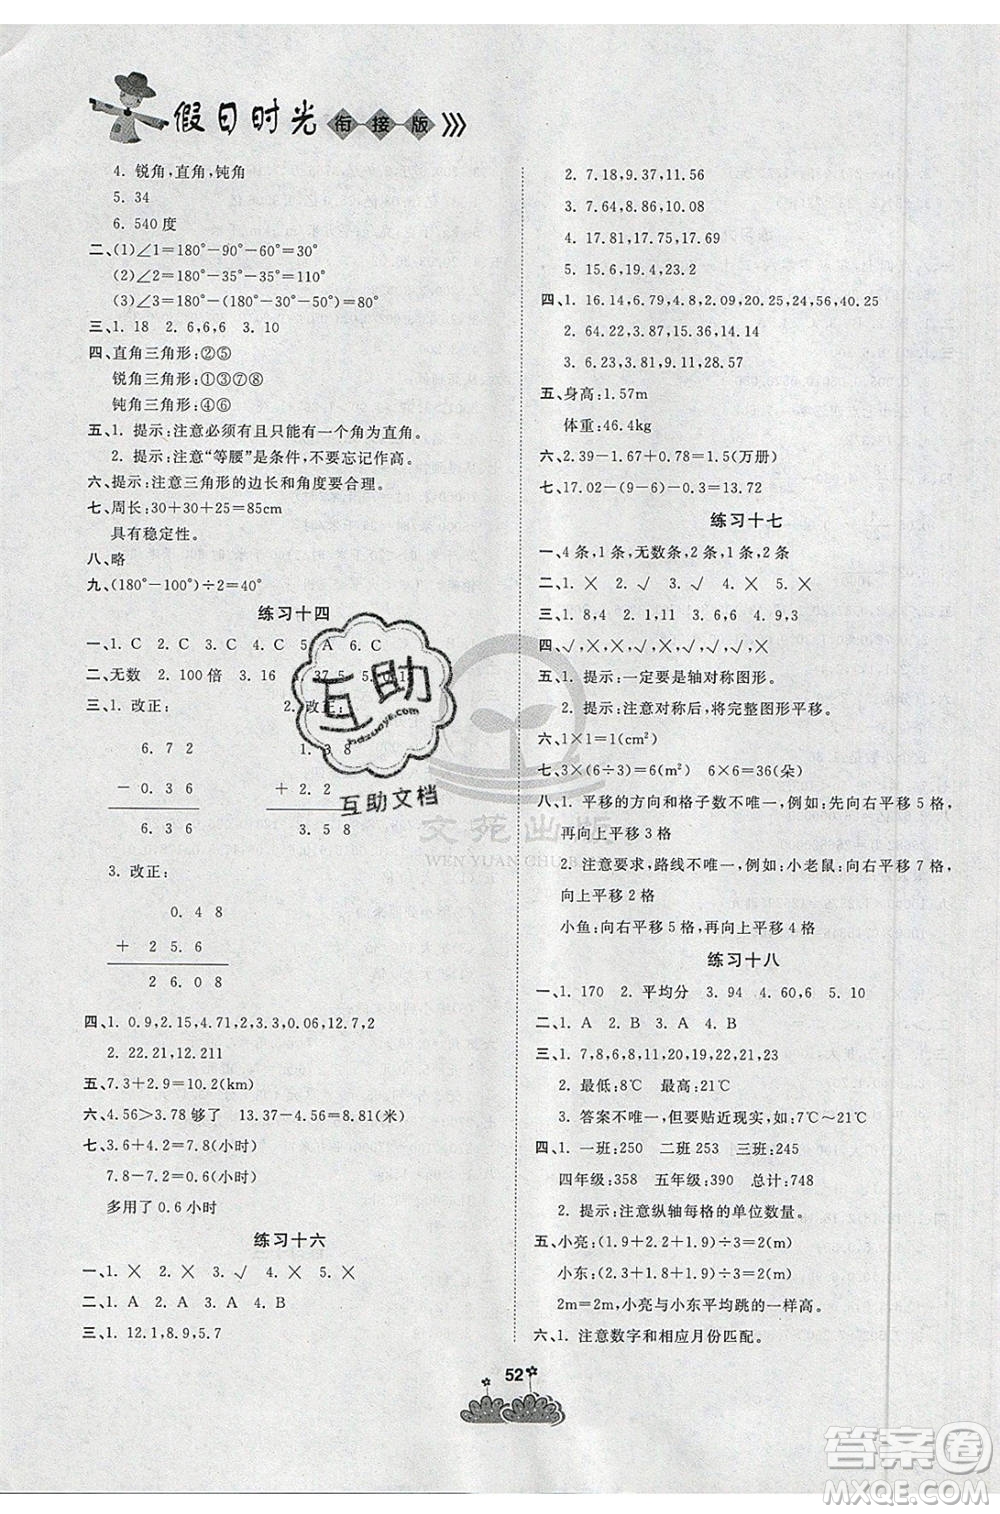 假日时光 衔接版
4. 锐角,直角,钝角
5. 34
6. 540 度
二、(1)∠1=180°-90°-60°=30°
(2)∠2=180°-35°-35°=110°
(3)∠2=180°-(180°-30°-50°)=80°
三、1. 18 2. 6,6,6 3. 10
四、直角三角形:②⑤
锐角三角形:①③⑦⑧
钝角三角形:④⑥
五、1. 提示:注意必须有且只能有一个角为直角。
2. 提示:注意“等腰”是条件,不要忘记作高。
六、提示:注意三角形的边长和角度要合理。
七、周长:30+30+25=85cm
具有稳定性。
八、略
九、(180°-100°)÷2=40°
练习十四
一、1. C 2. C 3. C 4. C 5. A 6. C
二、1. 无数 2. 100 倍 3. 16 4. 37.5 5. 0.1
三、1. 改正: 2. 改正:
6.72 1.38
-0.36 +2.2
6.36 3.58
3. 改正:
0.48
+25.6
26.08
四、1. 0.9,2.15,4.71,2,3.3,0.06,12.7,2
2. 22.21,12.211
五、7.3+2.9=10.2(km)
六、4.56>3.78 够了 13.37-4.56=8.81(米)
七、3.6+4.2=7.8(小时)
7.8-7.2=0.6(小时)
多用了 0.6 小时
练习十六
一、1. × 2. × 3. √ 4. × 5. ×
二、1. A 2. C 3. A 4. B 5. C
三、1. 12.1,8.9,5.7
2. 7.18,9.37,11.56
3. 7.64,8.86,10.08
4. 17.81,17.75,17.69
5. 15.6,19.4,23.2
四、1. 16.14,6.79,4.8,2.09,20,24,56,40.25
2. 64.22,3.87,35,14.14
3. 6.23,3.81,9.11,28.57
五、身高:1.57m
体重:46.4kg
六、2.39-1.67+0.78=1.5(万册)
七、17.02-(9-6)-0.3=13.72
练习十七
一、4 条,1 条,无数条,2 条,1 条,2 条
二、1. × 2. √ 3. √ 4. × 5. ×
三、1. 8,4 2. 1,11 3. 8,7 4. 6 4. 9,3
四、√,×,×,√,×,×,√,×
五、1. 提示:一定要是轴对称图形。
2. 提示:注意对称后,将完整图形平移。
六、1×1=1(cm²)
七、3×(6÷3)=6(m²) 6×6=36(朵)
八、1. 平移的方向和格子数不唯一,例如:向右平移 5 格,
再向上平移 3 格
2. 注意要求,路线不唯一,例如:小老鼠:向右平移 7 格,
向上平移 2 格
小鱼:向右平移 5 格,再向上平移 4 格
练习十八
一、1. 170 2. 平均分 3. 94 4. 60,6 5. 10
二、1. A 2. B 3. A 4. B
三、1. 7,8,6,8,11,18,20,21,22,21,23
2. 最低:8℃ 最高:21℃
3. 答案不唯一,但要贴近现实,如:7℃~21℃
四、1. 一班:250 二班 253 三班:245
四年级:358 五年级:390 总计:748
2. 提示:注意纵轴每格的单位数量。
五、小亮:(1.9+2.2+1.9)÷3=2(m)
小东:(2.3+1.8+1.9)÷3=2(m)
2m=2m,小亮与小东平均跳的一样高。
六、1. 注意数字和相应月份匹配。
52
互助
hdzuoye.com
互助文档
文苑出版
WEN YUAN CHU BAN
答案圈
MXQE.COM